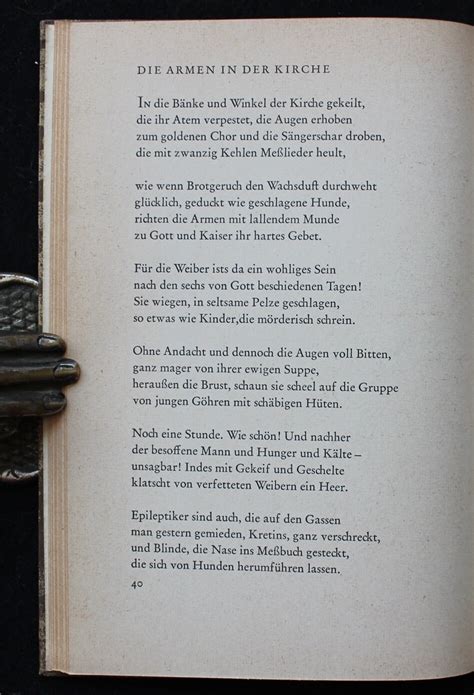 DIE ARMEN IN DER KIRCHE
IN die Bänke und Winkel der Kirche gekeilt,
die ihr Atem verpestet, die Augen erhoben
zum goldenen Chor und die Sängerschar droben,
die mit zwanzig Kehlen Meßlieder heult,
wie wenn Brotgeruch den Wachsduft durchweht
glücklich, geduckt wie geschlagene Hunde,
richten die Armen mit lallendem Munde
zu Gott und Kaiser ihr hartes Gebet.
Für die Weiber ists da ein wohliges Sein
nach den sechs von Gott beschiedenen Tagen!
Sie wiegen, in seltsame Pelze geschlagen,
so etwas wie Kinder,die mörderisch schrein.
Ohne Andacht und dennoch die Augen voll Bitten,
ganz mager von ihrer ewigen Suppe,
heraußen die Brust, schaun sie scheel auf die Gruppe
von jungen Göhren mit schäbigen Hüten.
Noch eine Stunde. Wie schön! Und nachher
der besoffene Mann und Hunger und Kälte –
unsagbar! Indes mit Gekeif und Geschelte
klatscht von verfetteten Weibern ein Heer.
Epileptiker sind auch, die auf den Gassen
man gestern gemieden, Kretins, ganz verschreckt,
und Blinde, die Nase ins Meßbuch gesteckt,
die sich von Hunden herumführen lassen.
40